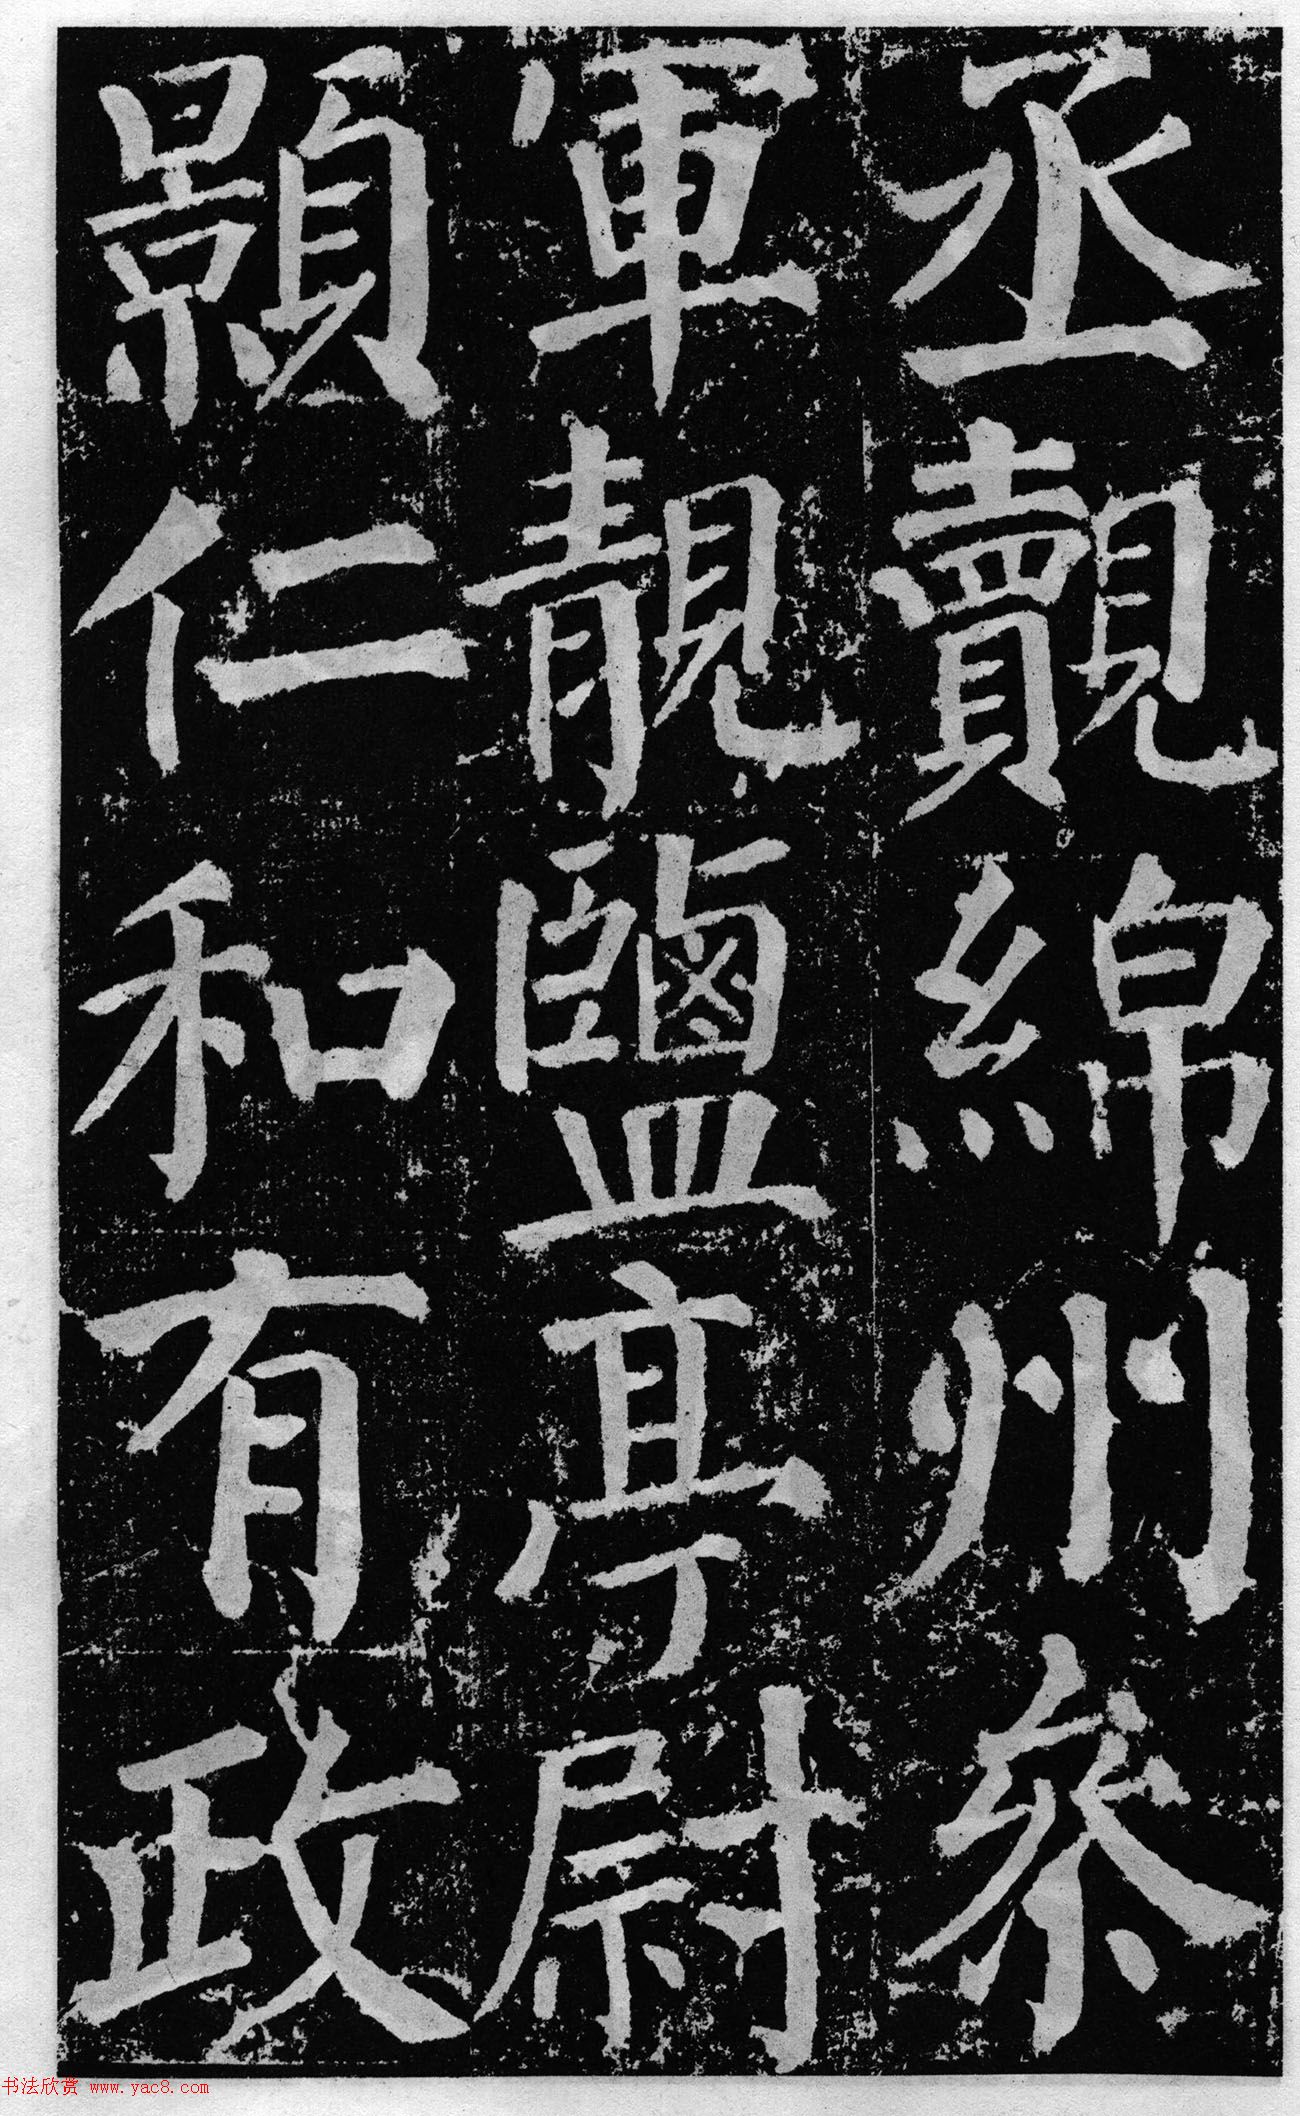 丞覿綿州參
軍靚鹽亭尉
顥仁和有政
书法欣赏 www.yac8.com